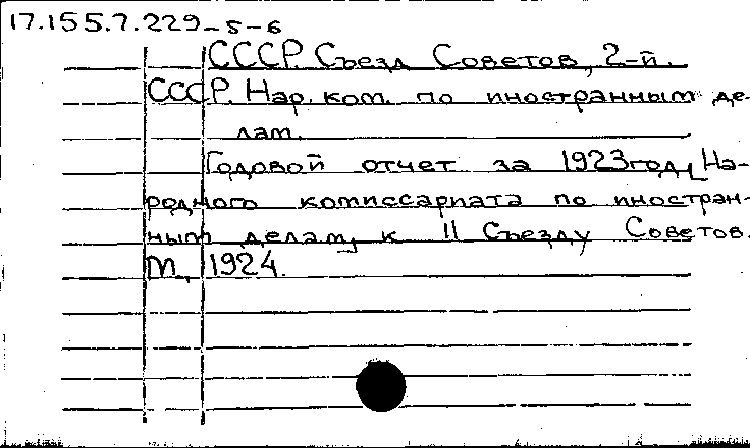 17.155.7.229-5-6
СССР. Съезд Советов, 2-й.
СССР. Нар. ком. по иностранным де-
лам.
Годовой отчет за 1923 год, На-
родного комиссариата по иностран-
ным делам, к II Съезду Советов.
М., 1924.